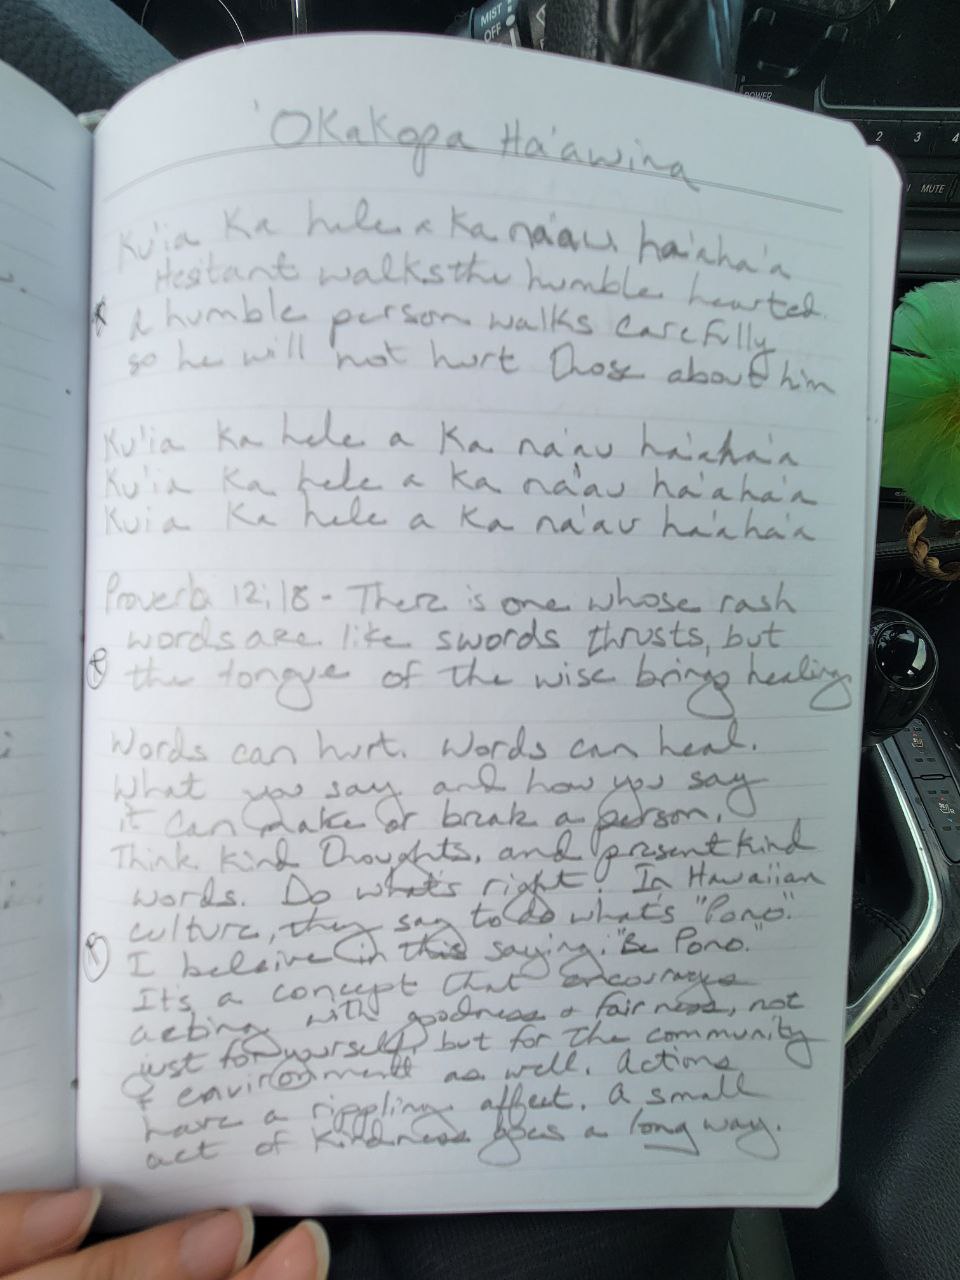 MIST
OFF
POWER
2 3 4
MUTE
'OKaKopa Ha'awina
Ku'ia Ka hele a Ka na'au ha'aha'a
Hesitant walks the humble hearted.
A humble person walks carefully
so he will not hurt those about him
Ku'ia Ka hele a Ka na'au ha'aha'a
Ku'ia Ka hele a Ka na'au ha'aha'a
Kuia Ka hele a Ka na'au ha'aha'a
Proverb 12:18 - There is one whose rash
words are like swords thrusts, but
the tongue of the wise brings healing
Words can hurt. Words can heal.
What you say and how you say
it can make or break a person.
Think kind thoughts, and present kind
words. Do what's right! In Hawaiian
culture, they say to do what's "Pono".
I beleive in this saying. "Be Pono."
It's a concept that encourages
acting with goodness & fairness, not
just for yourself, but for the community
& environment as well. Actions
have a rippling affect. A small
act of kindness goes a long way.